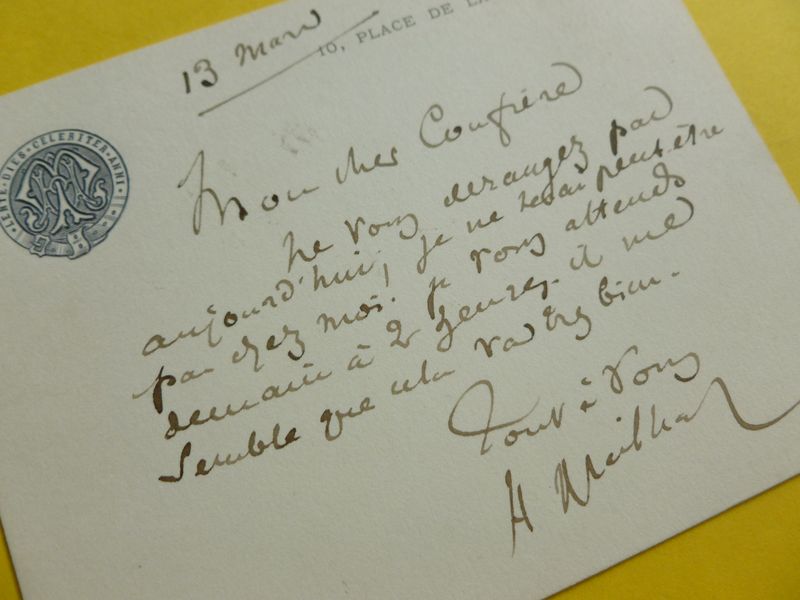 13 Mars
10, PLACE DE LA
LENTE · DIES · CELERITER · ANNI
Mon cher Confrère
Ne vous derangez pas
aujourd'hui, je ne serai peut être
pas chez moi. je vous attends
demain à 2 heures. il me
semble que cela va très bien.
Tout à vous
H Meilhac